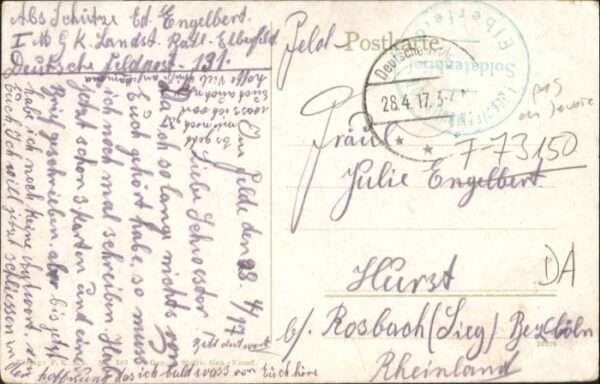 Abs Schütze Ed. Engelbert.
I M G K. Landst. Batl. Elberfeld
Deutsche Feldpost. 131.
Feld-Postkarte
Deutsche
28.4.17. 3-
Soldatenbrief
Elberfeld
Fräul
Julie Engelbert.
Hurst
b/ Rosbach (Sieg) Bez. Cöln
Rheinland
7-73150
DA
Im Felde den 28. 4/17
Liebe Schwester!
Da ich so lange nichts von
Euch gehört habe, so muss
ich noch mal schreiben. Habe
jetzt schon 3 Karten und ein
Brief geschrieben. aber bis jetzt
habe ich noch keine Antwort. von
Euch. Ich will jetzt schliessen in
der Hoffnung das ich bald was von Euch höre
es geht
mir noch
gut